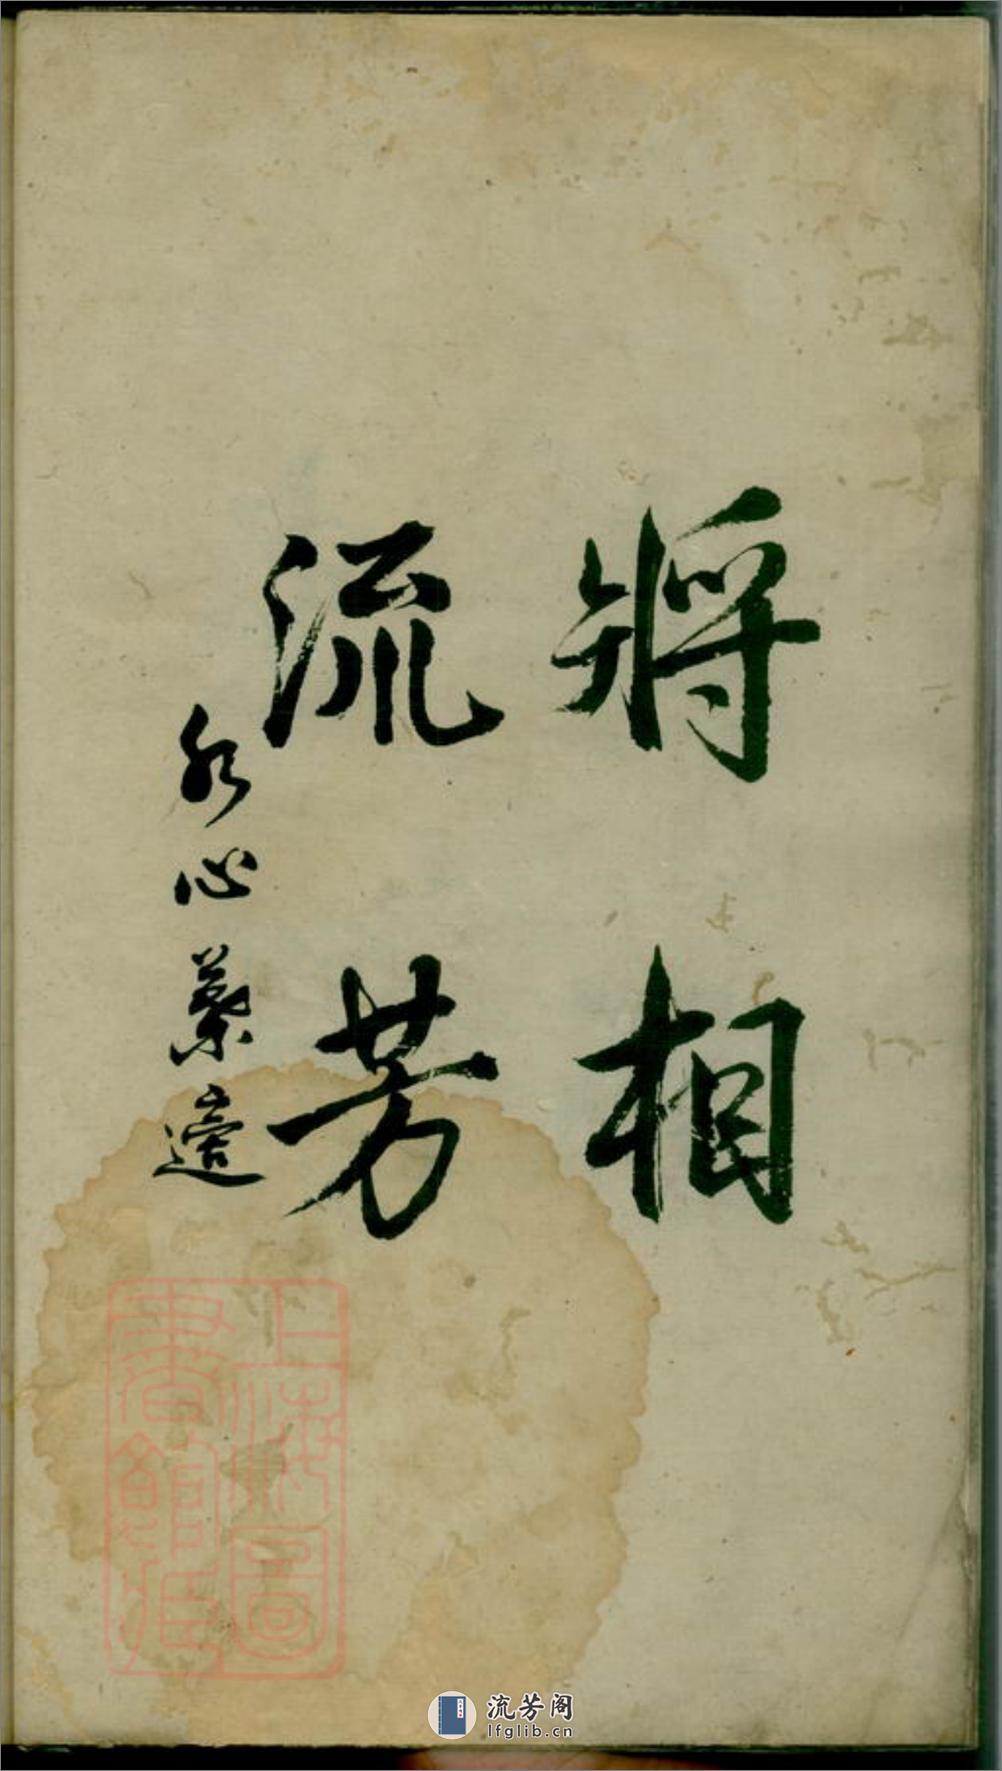 將相
流芳
水心葉適
上海圖
書館藏
流芳阁
lfglib.cn